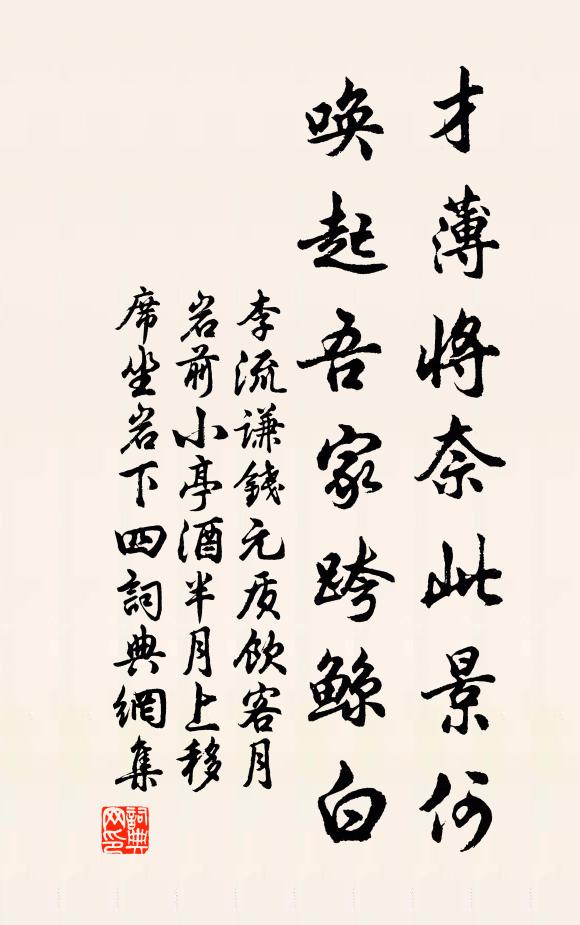 才薄將奈此景何
喚起吾家跨鯨白
李流謙錢元质飲客月
岩前小亭酒半月上移
席坐岩下四詞典網集
詞典
网印